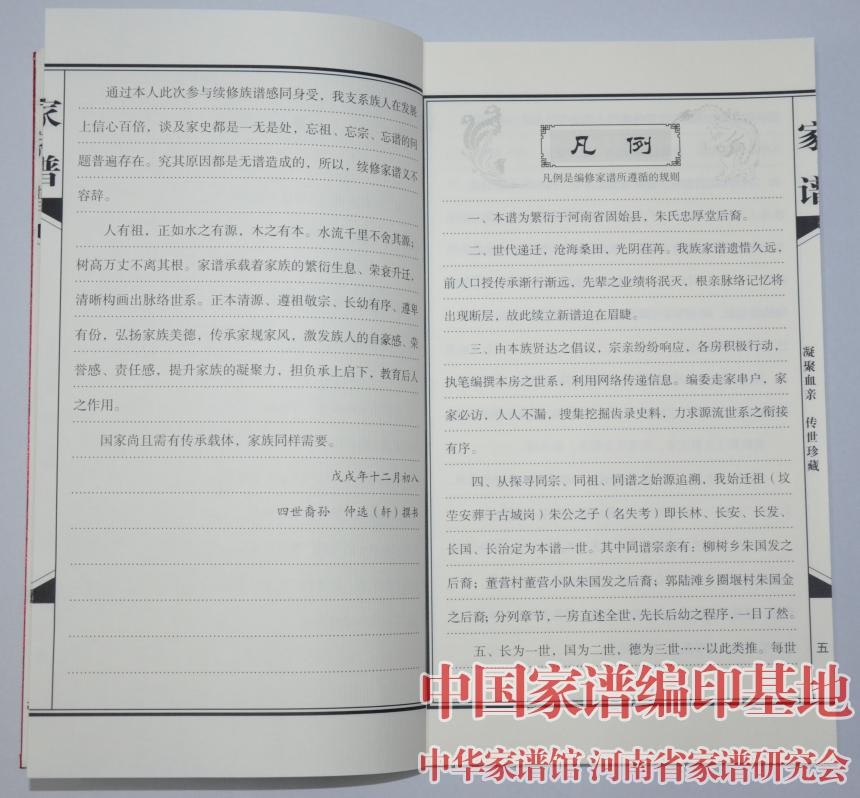 家谱
通过本人此次参与续修族谱感同身受，我支系族人在发展
上信心百倍，谈及家史都是一无是处，忘祖、忘宗、忘谱的问
题普遍存在。究其原因都是无谱造成的，所以，续修家谱义不
容辞。
人有祖，正如水之有源，木之有本。水流千里不舍其源；
树高万丈不离其根。家谱承载着家族的繁衍生息、荣衰升迁，
清晰构画出脉络世系。正本清源、遵祖敬宗、长幼有序、遵卑
有份，弘扬家族美德，传承家规家风，激发族人的自豪感、荣
誉感、责任感，提升家族的凝聚力，担负承上启下，教育后人
之作用。
国家尚且需有传承载体，家族同样需要。
戊戌年十二月初八
四世裔孙　仲选（轩）撰书
凡例
凡例是编修家谱所遵循的规则
一、本谱为繁衍于河南省固始县，朱氏忠厚堂后裔。
二、世代递迁，沧海桑田，光阴荏苒。我族家谱遗惜久远，
前人口授传承渐行渐远，先辈之业绩将泯灭，根亲脉络记忆将
出现断层，故此续立新谱迫在眉睫。
三、由本族贤达之倡议，宗亲纷纷响应，各房积极行动，
执笔编撰本房之世系，利用网络传递信息。编委走家串户，家
家必访，人人不漏，搜集挖掘齿录史料，力求源流世系之衔接
有序。
四、从探寻同宗、同祖、同谱之始源追溯，我始迁祖（坟
茔安葬于古城岗）朱公之子（名失考）即长林、长安、长发、
长国、长治定为本谱一世。其中同谱宗亲有：柳树乡朱国发之
后裔；董营村董营小队朱国发之后裔；郭陆滩乡圈堰村朱国金
之后裔；分列章节，一房直述全世，先长后幼之程序，一目了然。
五、长为一世，国为二世，德为三世……以此类推。每世
家谱
凝聚血亲　传世珍藏
五
中国家谱编印基地
中华家谱馆 河南省家谱研究会